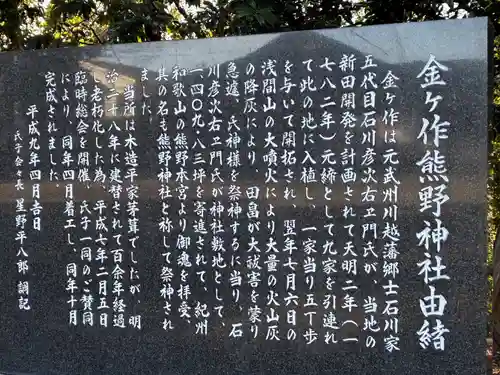 金ヶ作熊野神社由緒
金ヶ作は元武州川越藩郷士石川家
五代目石川彦次右ヱ門氏が、当地の
新田開発を計画されて天明二年(一
七八二年)元締として九家を引連れ
て此の地に入植し、一家当り五丁歩
を与いて開拓され、翌年七月六日の
浅間山の大噴火により大量の火山灰
の降灰により、田畠が大被害を蒙り
急遽、氏神様を祭神するに当り、石
川彦次右ヱ門氏が神社敷地として、
一四〇九・八三坪を寄進されて、紀州
和歌山の熊野本宮より御魂を拝受、
其の名も熊野神社と称して祭神され
ました。
当所は木造平家茅葺でしたが、明
治二十八年に建替されて百余年経過
し老朽化した為、平成七年二月五日
臨時総会を開催、氏子一同のご賛同
により、同年四月着工し、同年十月
完成されました。
平成九年四月吉日
氏子会々長 星野平八郎 調記